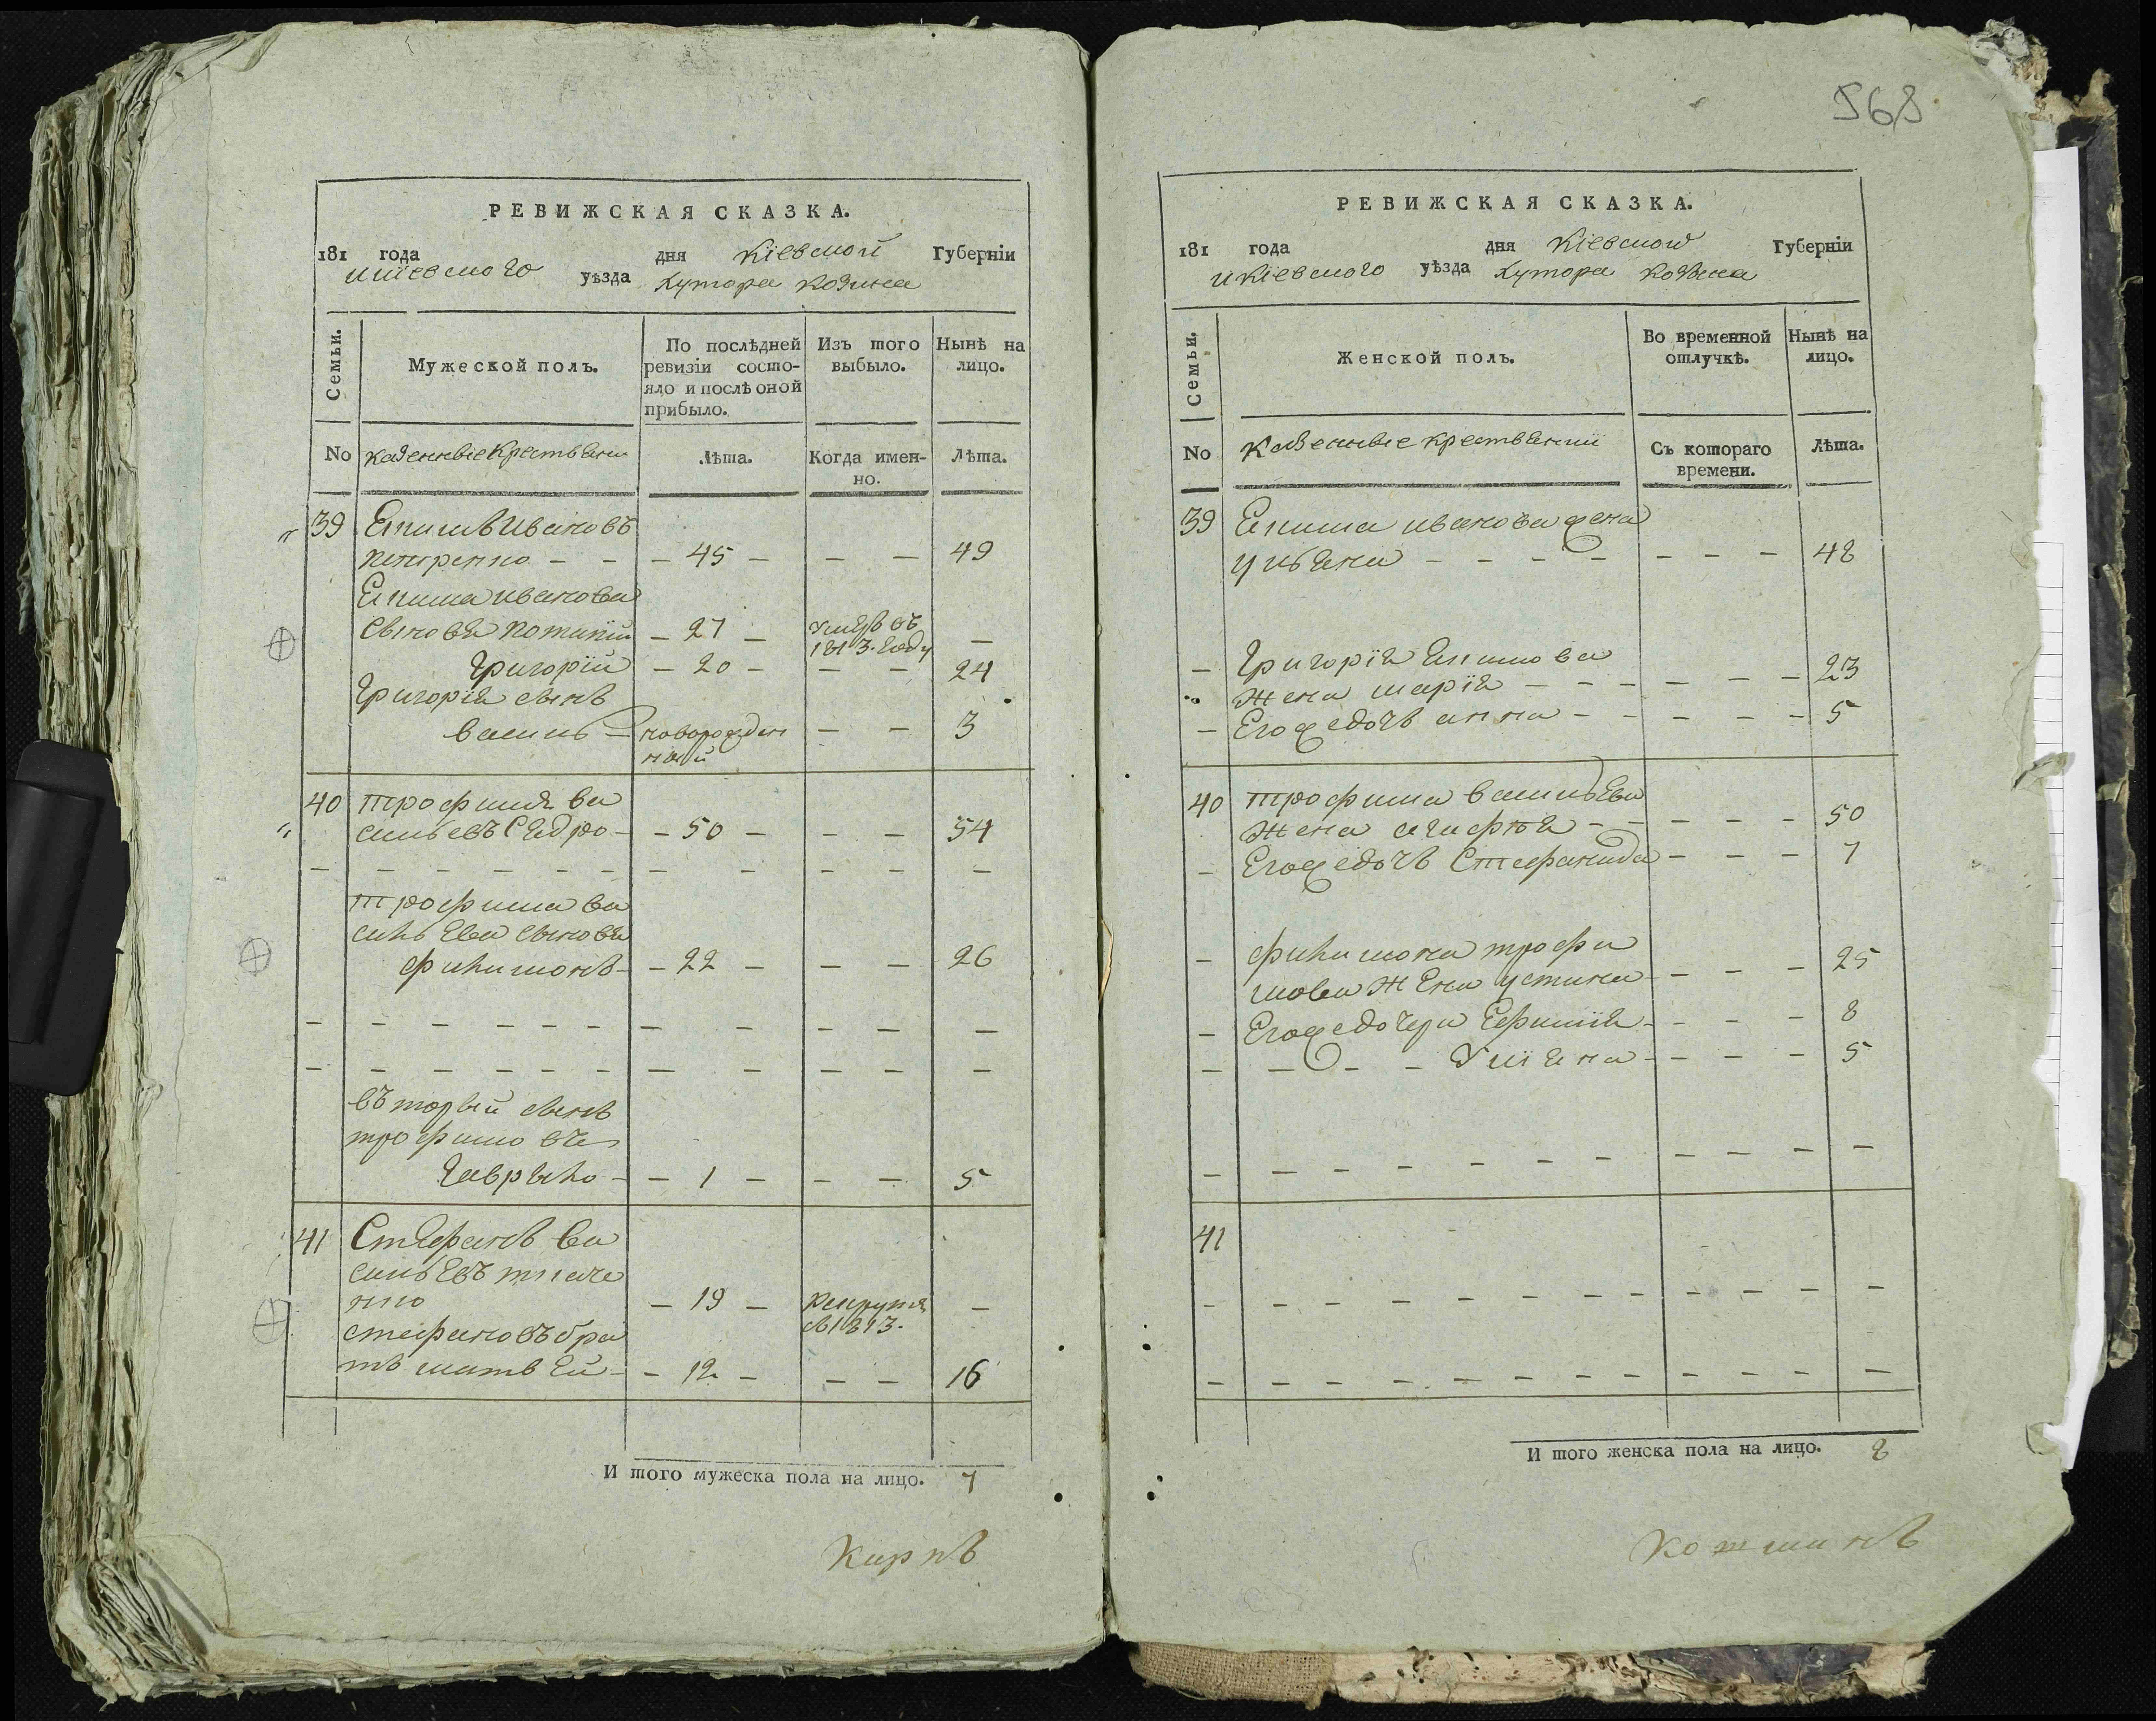 РЕВИЖСКАЯ СКАЗКА.
181 года дня Кіевской Губерніи
икіевского уѣзда хутора козина
Семьи.
Мужеской полъ.
По послѣдней ревизіи состо-
яло и послѣ оной
прибыло.
Изъ того
выбыло.
Нынѣ на
лицо.
No казенные крестьяни
Лѣта.
Когда имен-
но.
Лѣта.
39 Ивановъ
петренко - - - 45 - - - 49
Иванова
сынове - 27 -
1813. году -
григорій - 20 - - - 24
григорія сынъ
василь - новорожден
ной - - 3
40 трофимъ ва
сильевъ - - 50 - - - 54
трофима ва
сильева сынове
филимонъ - - 22 - - - 26
въторый сынъ
трофимовъ
гаврыло - - 1 - - - 5
41 Стефанъ ва
сильевъ ткаче
нко - 19 - рекрутъ
1813. -
стефановъ бра
тъ матвей - - 12 - - - 16
И того мужеска пола на лицо. 7
Кирпъ
568
РЕВИЖСКАЯ СКАЗКА.
181 года дня Кіевской Губерніи
икіевского уѣзда хутора козина
Семьи.
Женской полъ.
Во временной
отлучкѣ.
Нынѣ на
лицо.
No казенные крестьянки
Съ котораго
времени.
Лѣта.
39 иванова жена
ульяна - - - - - - - 48
- григорія
жена марія - - - - - - 23
- Егожедочъ анна - - - - - 5
40 трофима васильева
жена агафія - - - - - 50
- Егожедочъ Стефанида - - - 7
- филимона трофи
мова жена устина - - - - 25
- Егожедочери Ефимія - - - - 8
- - - - Уліяна - - - - 5
41
И того женска пола на лицо. 8